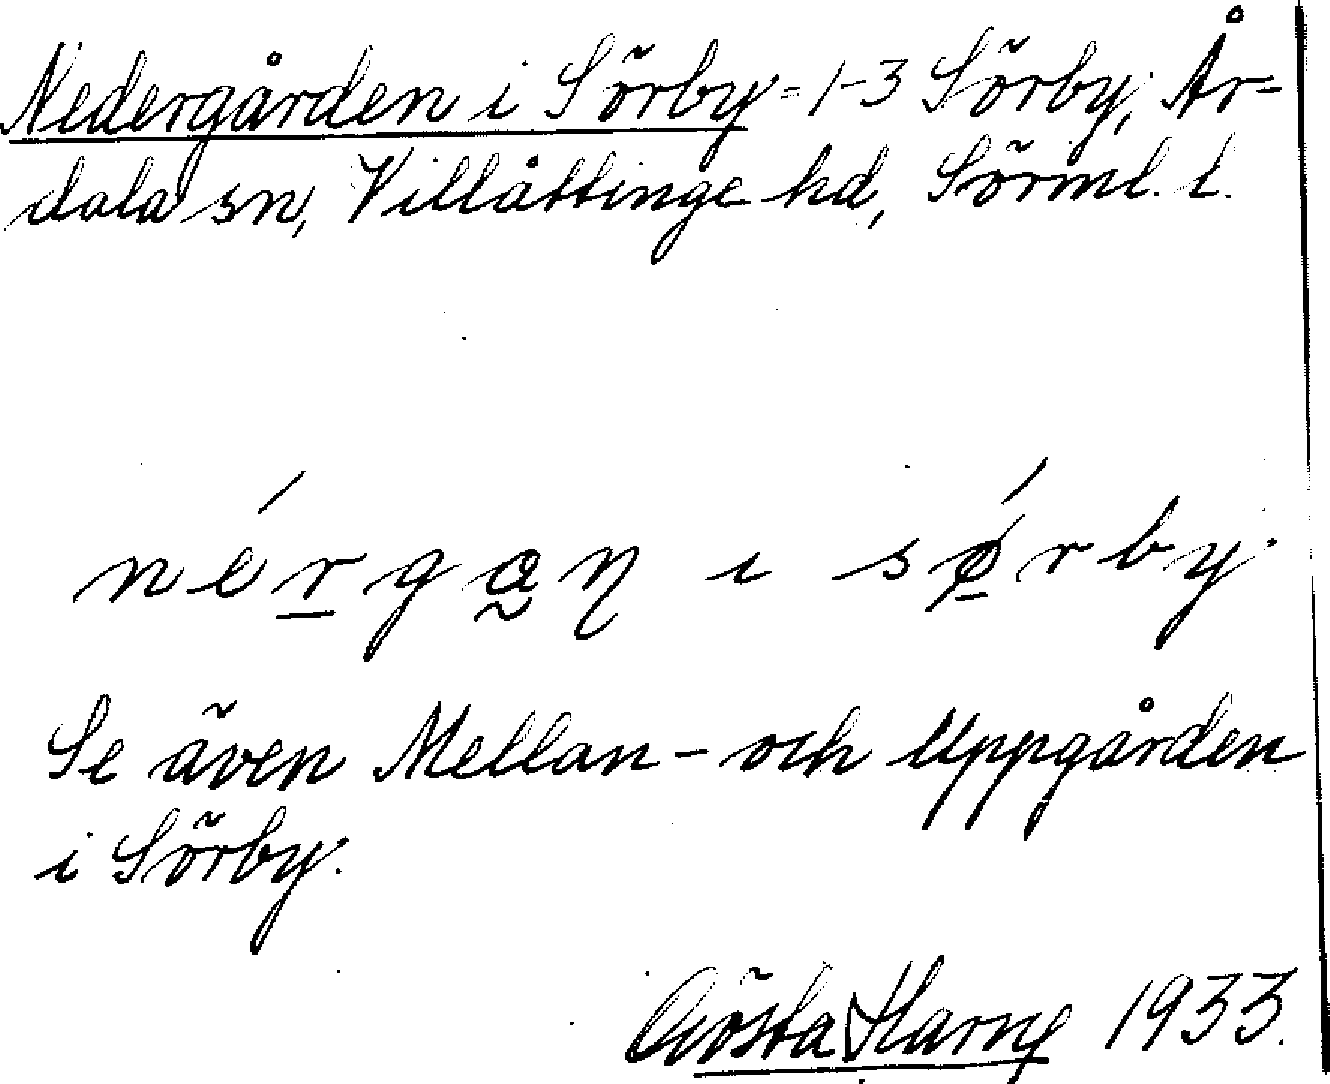 Nedergården i Sörby = 1-3 Sörby, År-
dala sn, Villåttinge hd, Sörml. l.
nérgan ı sǿrby.
Se även Mellan- och Uppgården
i Sörby.
Gösta Harne 1933.